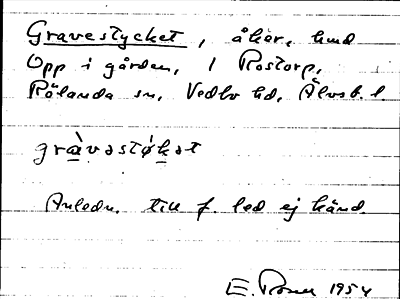 Gravestycket, åker, hmd
Opp i gården, 1 Rostorp,
Rölanda sn, Vedbo hd, Älvsb. l.
gràvəstýkət
Anledn. till f. led ej känd.
E. 1954